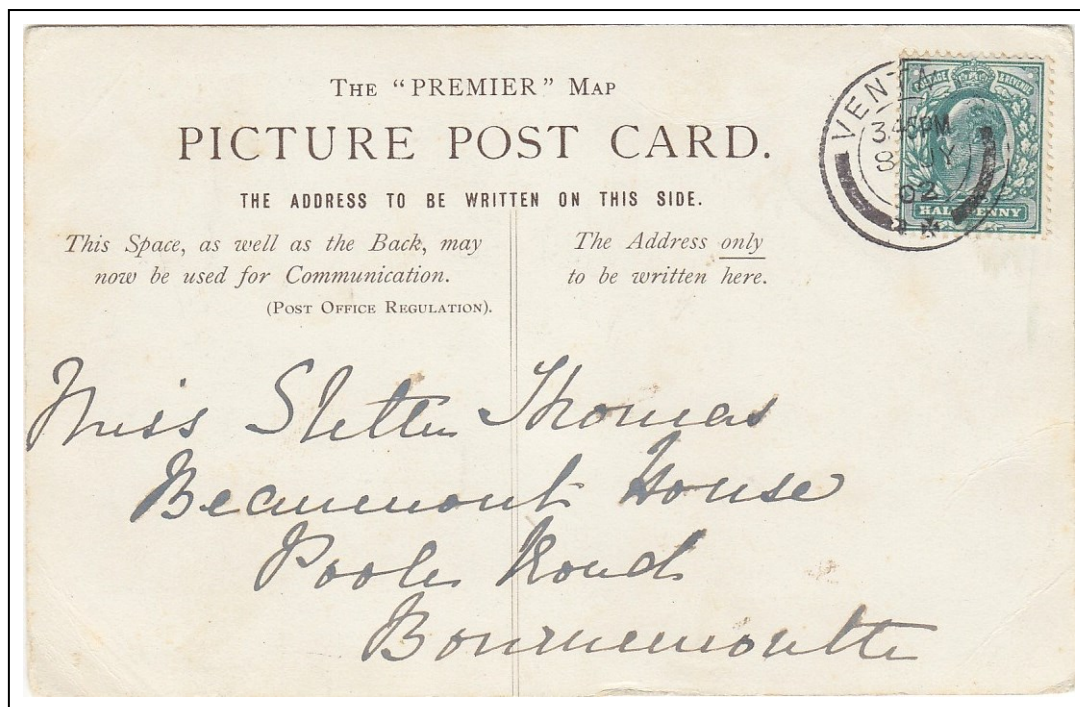 The "PREMIER" Map
PICTURE POST CARD.
THE ADDRESS TO BE WRITTEN ON THIS SIDE.
This Space, as well as the Back, may
now be used for Communication.
(Post Office Regulation).
The Address only
to be written here.
POSTAGE & REVENUE
HALFPENNY
3.45PM
8 JY
02
Miss Thomas
Beaumont House
Poole Road
Bournemouth